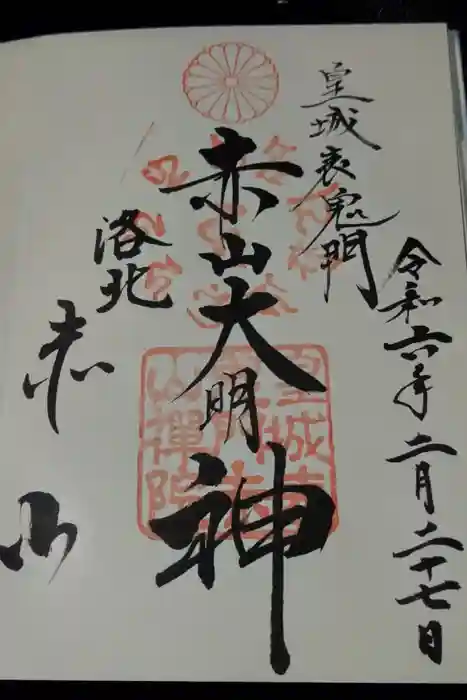 令和六年二月二十七日
皇城表鬼門
赤山大明神
洛北
赤山